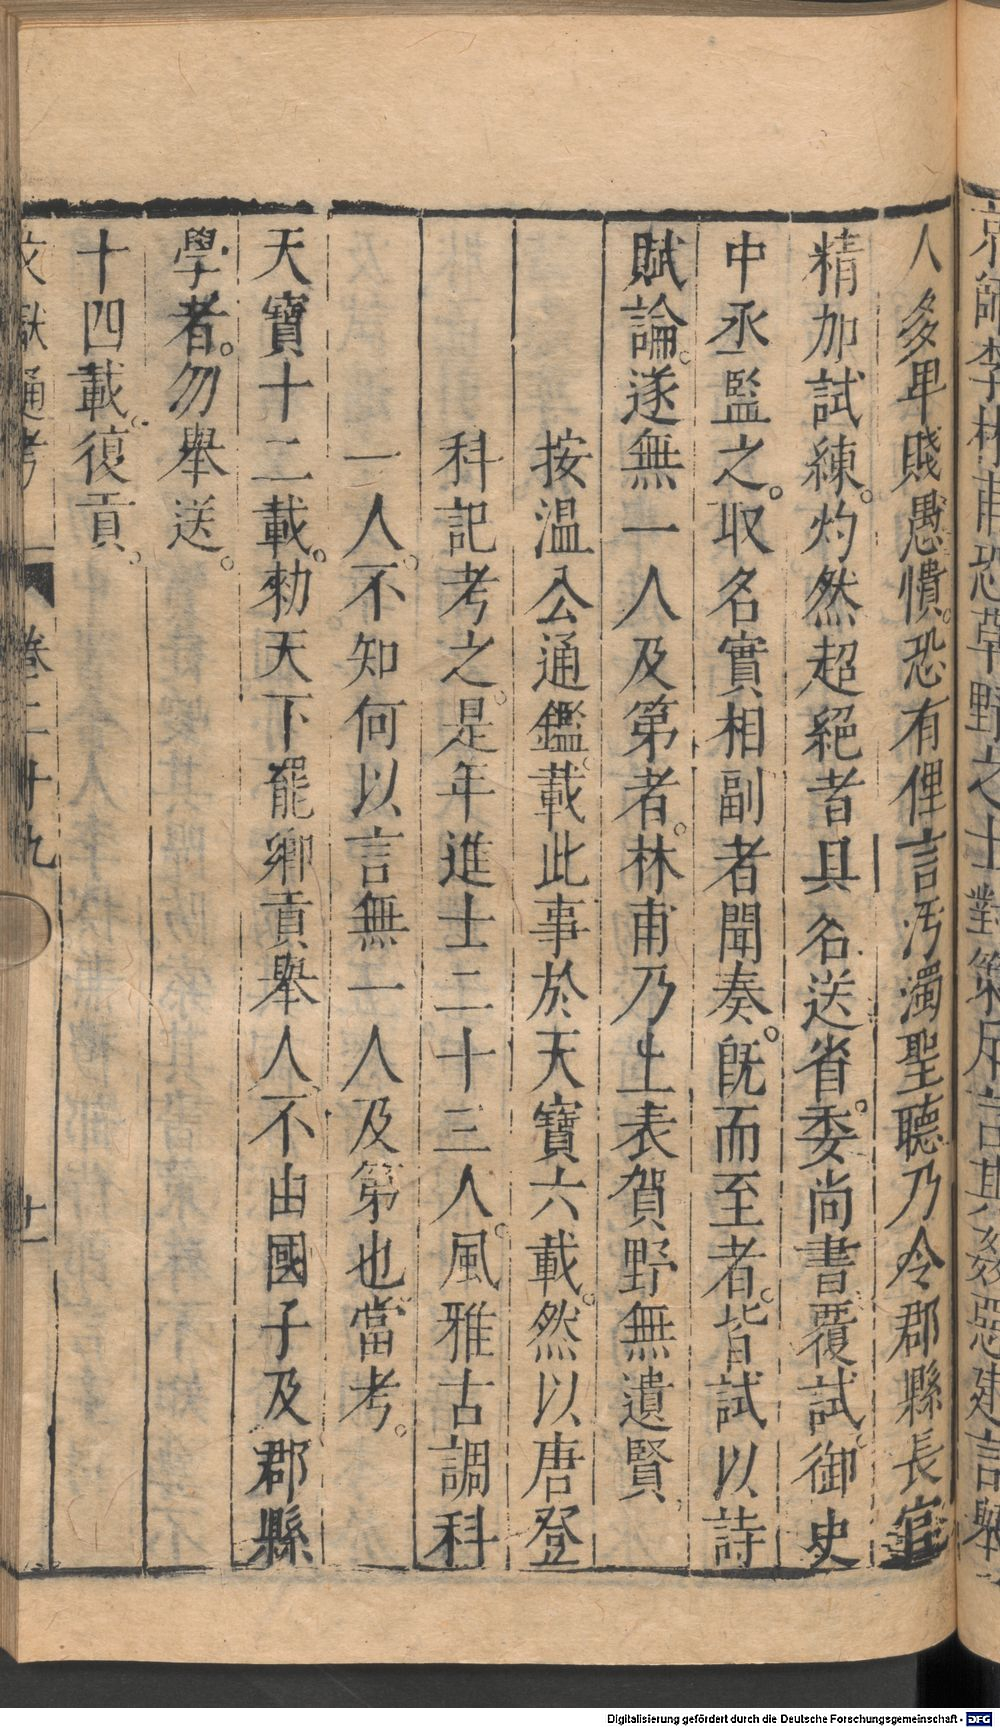 京師李林甫恐草野之士對策斥言其姦惡建言舉
人多卑賤愚憒。恐有俚言汚濁聖聽乃令郡縣長官
精加試練。灼然超絕者具名送省。委尚書覆試。御史
中丞監之。取名實相副者聞奏。旣而至者。皆試以詩
賦論。遂無一人及第者。林甫乃上表賀野無遺賢。
按溫公通鑑。載此事於天寶六載。然以唐登
科記考之。是年進士二十三人。風雅古調科
一人。不知何以言無一人及第也當考。
天寶十二載。勑天下罷鄉貢舉人不由國子及郡縣
學者。勿舉送。
十四載。復貢。
文獻通考 卷二十九 廿一
Digitalisierung gefördert durch die Deutsche Forschungsgemeinschaft - DFG